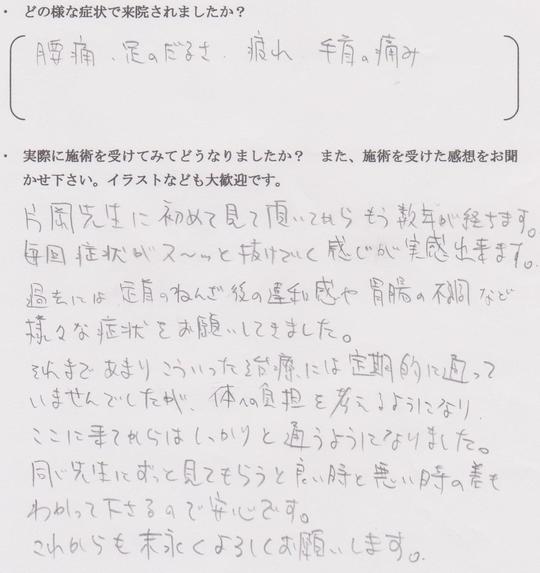 ・ どの様な症状で来院されましたか？
腰痛、足のだるさ、疲れ 手首の痛み
・ 実際に施術を受けてみてどうなりましたか？ また、施術を受けた感想をお聞
かせ下さい。イラストなども大歓迎です。
片岡先生に初めて見て頂いてからもう数年が経ちます。
毎回症状がス〜ッと抜けていく感じが実感出来ます。
過去には足首のねんざ後の違和感や胃腸の不調など
様々な症状をお願いしてきました。
それまであまりこういった治療には定期的に通って
いませんでしたが、体への負担を考えるようになり、
ここに来てからはしっかりと通うようになりました。
同じ先生にずっと見てもらうと良い時と悪い時の差も
わかって下さるので安心です。
これからも末永くよろしくお願いします。